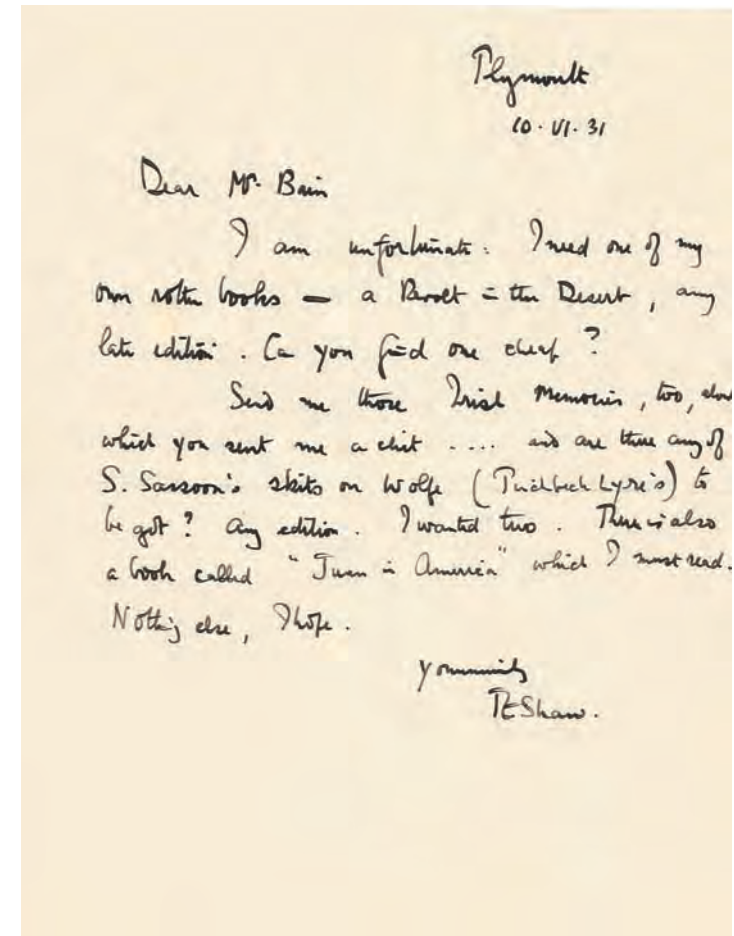 Plymouth
10.VI.31
Dear Mr. Bain
I am unfortunate. I need one of my
own rotten books — a Revolt in the Desert, any
late edition. Can you find one cheap?
Send me those Irish Memories, too, about
which you sent me a chit .... and are there any of
S. Sassoon's skits on Wolfe (Pinchbeck Lyre's) to
be got? Any edition. I wanted two. There is also
a book called "Juan in America" which I must read.
Nothing else, I hope.
Yours sincerely
TEShaw.